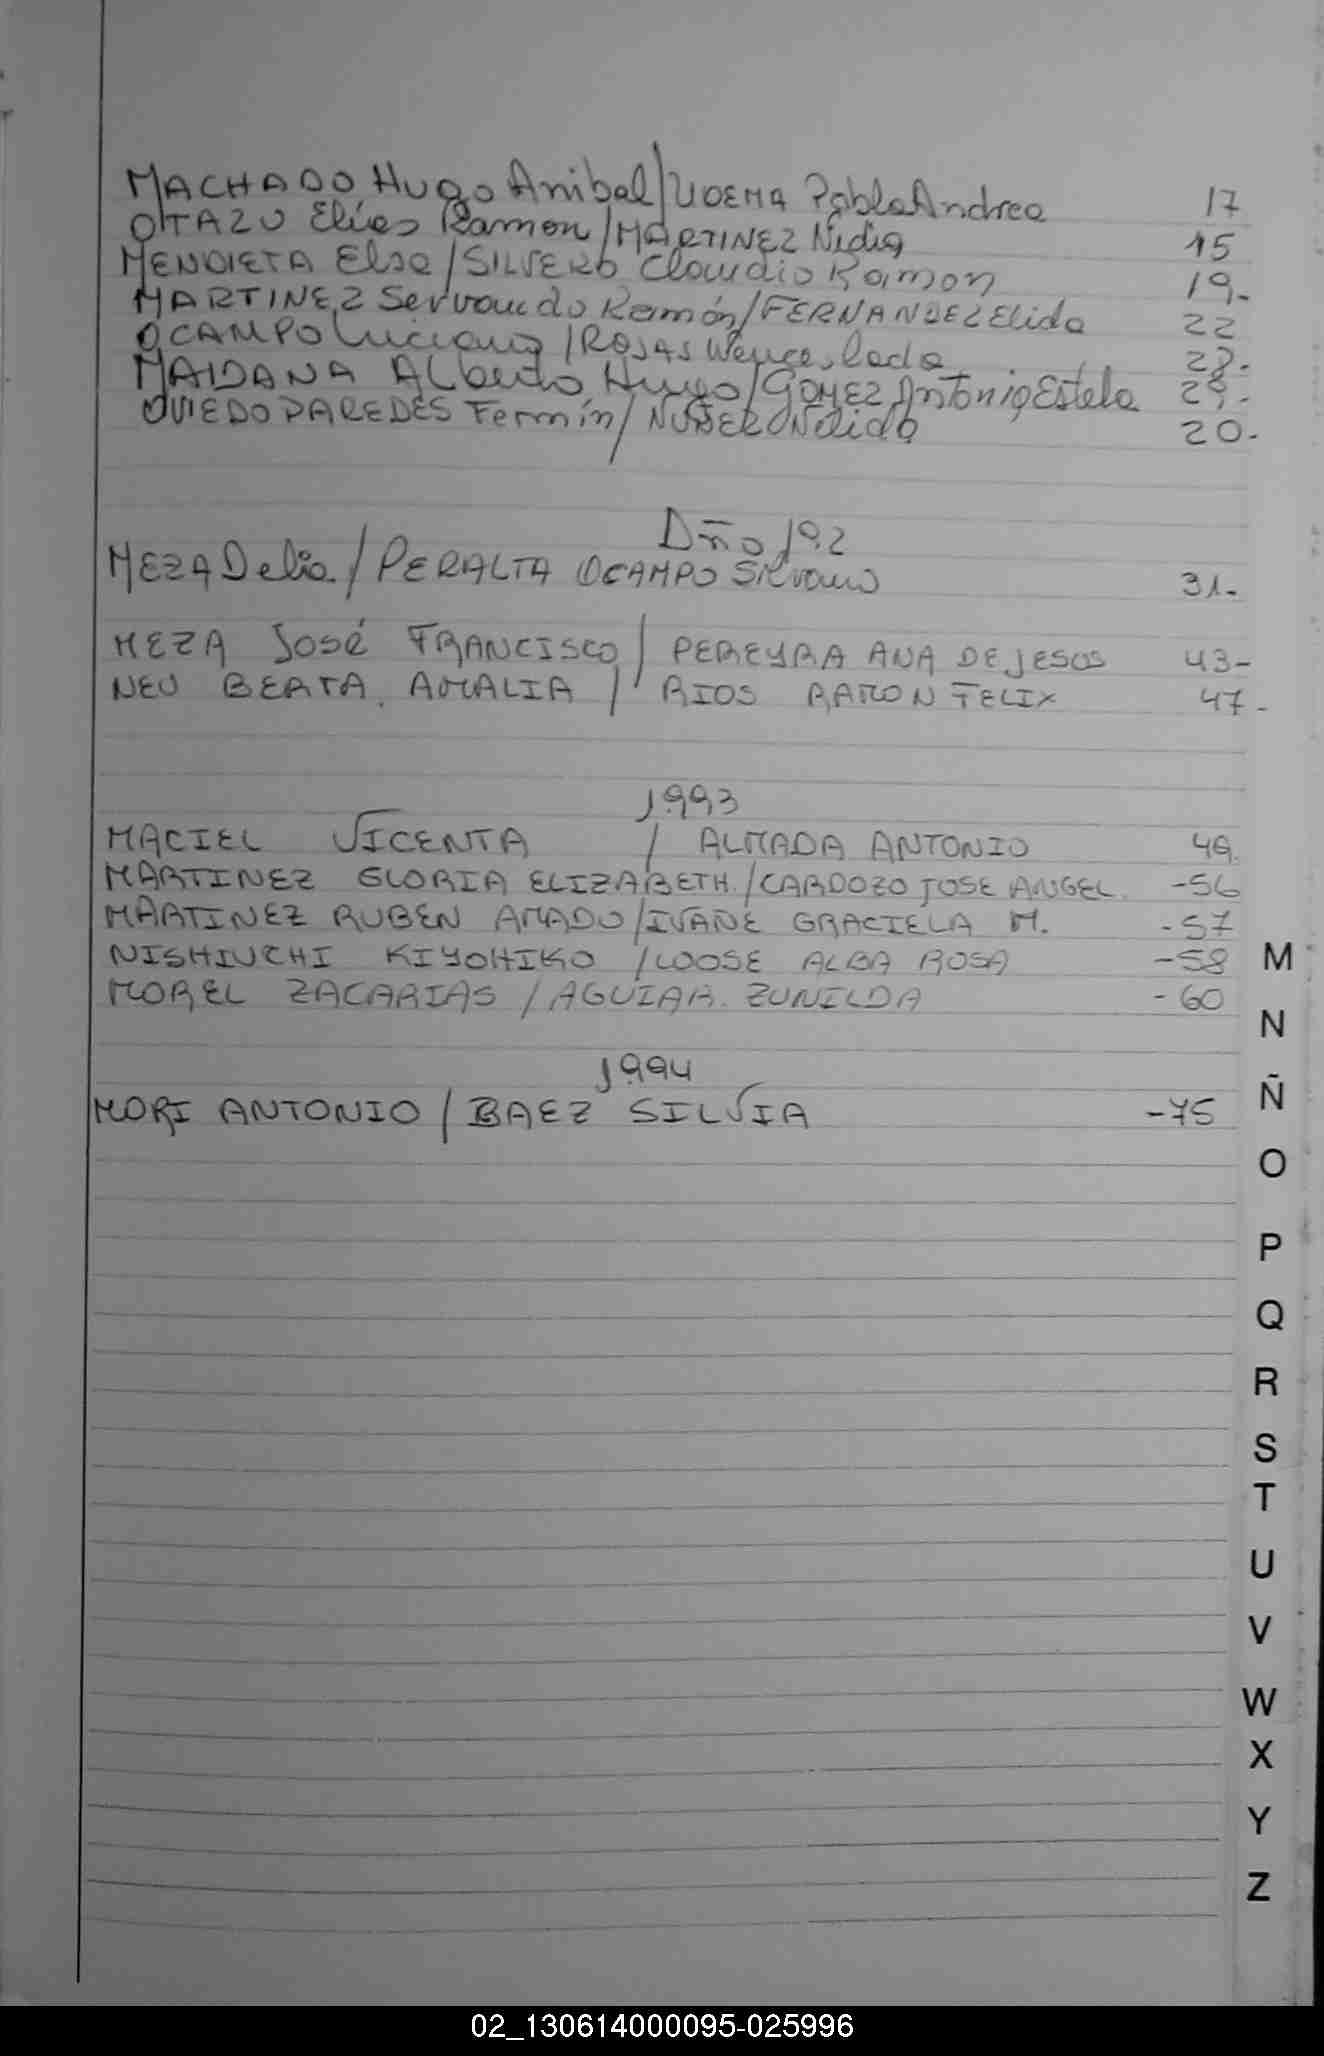 MACHADO Hugo Anibal/UDEMA Pabla Andrea 17
OTAZU Elías Ramon/MARTINEZ Nidia 15
MENDIETA Elsa/SILVERO Claudio Ramon 19.
MARTINEZ Servando Ramón/FERNANDEZ Elida 22
OCAMPO Luciano/ROJAS Wenceslada 28.
MAIDANA Alberto Hugo/GOMEZ Antonia Estela 29.
OVIEDO PAREDES Fermín/ Nélida 20.
Año 192
MEZA Delia/PERALTA OCAMPO Silvano 31.
MEZA José FRANCISCO/PEREYRA ANA DE JESOS 43-
NEU BERTA. AMALIA/RIOS RAMON FELIX 47.
1993
MACIEL VICENTA / ALMADA ANTONIO 49.
MARTINEZ GLORIA ELIZABETH./CARDOZO JOSE ANGEL. -56
MARTINEZ RUBEN AMADO/IVAÑE GRACIELA M. -57
NISHIUCHI KIYOHIKO /LOOSE ALBA ROSA -58
MOREL ZACARIAS /AGUIAR. ZUNILDA -60
1994
MORI ANTONIO/BAEZ SILVIA -75
M
N
Ñ
O
P
Q
R
S
T
U
V
W
X
Y
Z
02_130614000095-025996